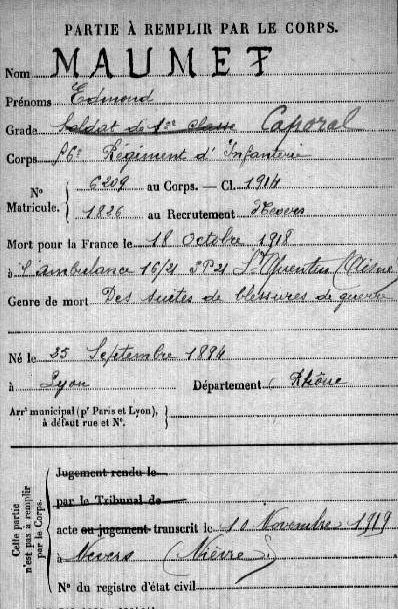 PARTIE À REMPLIR PAR LE CORPS.
Nom MAUMEF
Prénoms Edmond
Grade Soldat de 1ere classe Caporal
Corps Régiment d'Infanterie
N° Matricule. 6209 au Corps. — Cl. 1914
1826 au Recrutement Nevers
Mort pour la France le 18 Octobre 1918
à l'ambulance 16/21 SP 21 St Quentin (Aisne)
Genre de mort Des suites de blessures de guerre
Né le 25 Septembre 1894
à Lyon Département Rhône
Arrt municipal (pr Paris et Lyon),
à défaut rue et N°.
Cette partie n'est pas à remplir par le Corps.
Jugement rendu le
par le Tribunal de
acte ou jugement transcrit le 10 Novembre 1919
à Nevers (Nièvre)
N° du registre d'état civil